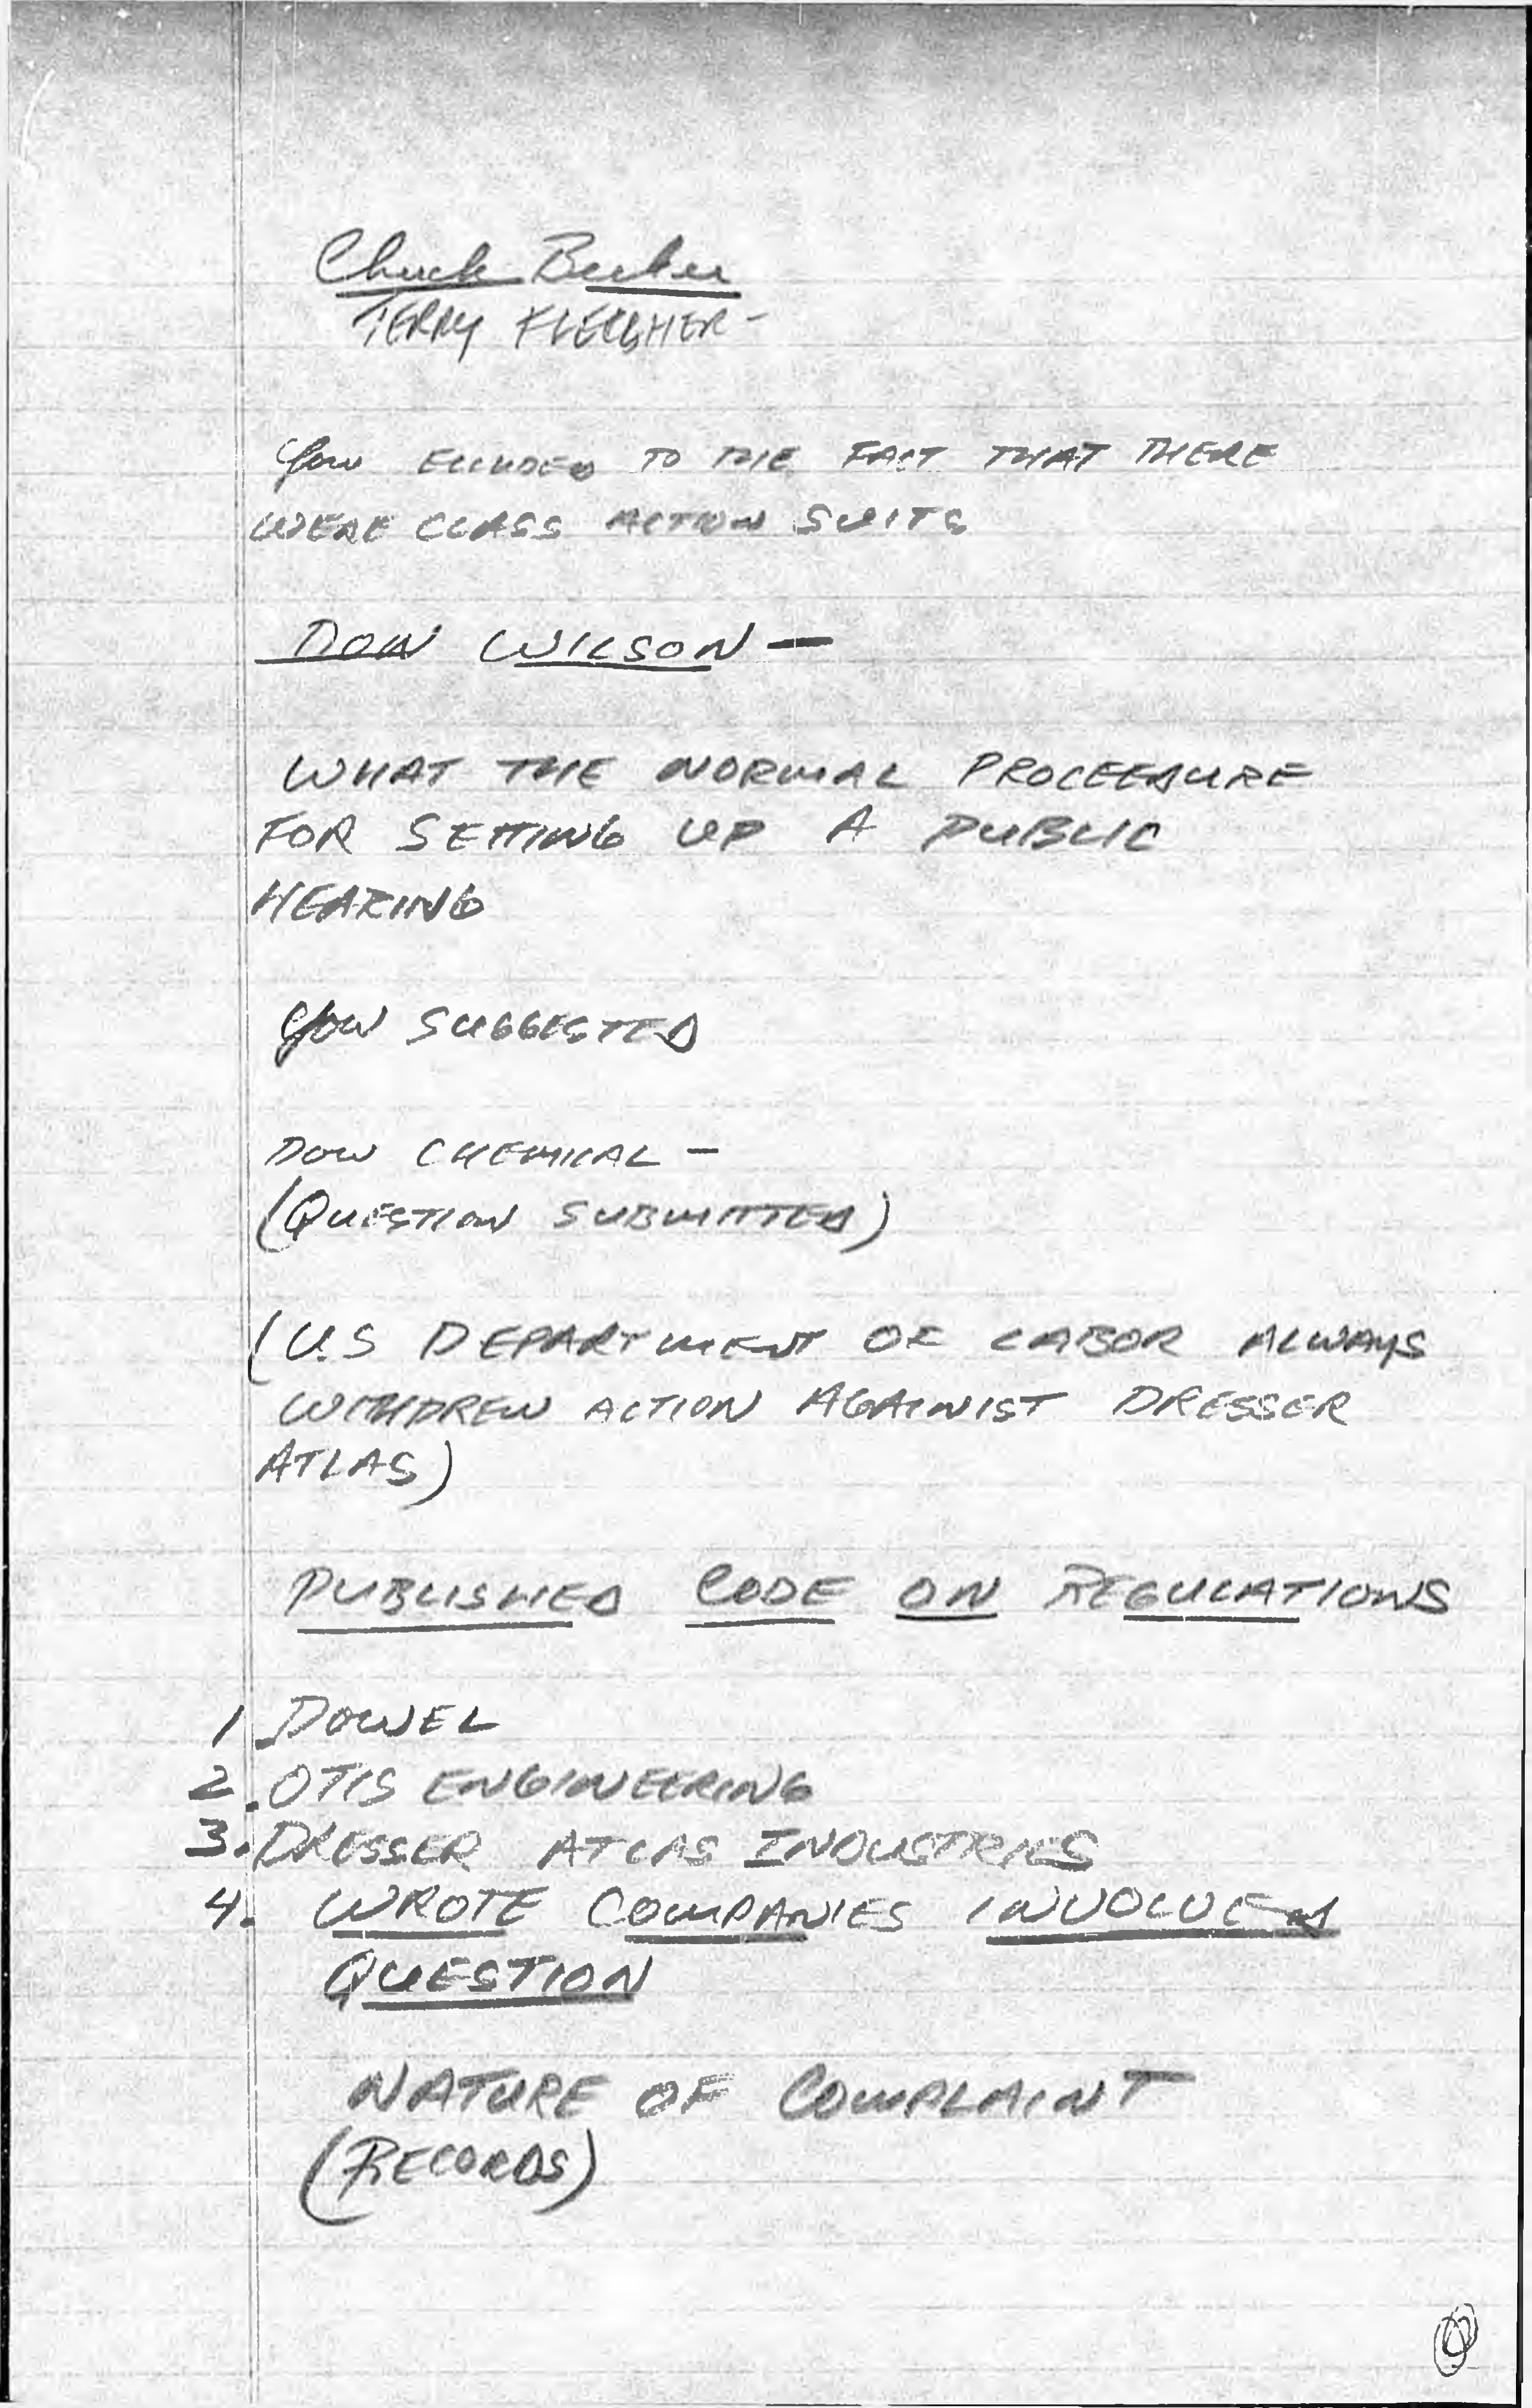 Chuck Becker
TERRY
You ELUDED TO THE FACT THAT THERE
WERE CLASS ACTION SUITS
DON WILSON —
WHAT THE NORMAL PROCEEDURE
FOR SETTING UP A PUBLIC
HEARING
You SUGGESTED
DOW CHEMICAL —
(QUESTION SUBMITTED)
(U.S DEPARTMENT OF LABOR ALWAYS
WITHDREW ACTION AGAINIST DRESSER
ATLAS)
PUBLISHED CODE ON REGULATIONS
1. DOWEL
2. OTIS ENGINEERING
3. DRESSER ATLAS INDUSTRIES
4. WROTE COMPANIES INVOLVED
QUESTION
NATURE OF COMPLAINT
(RECORDS)